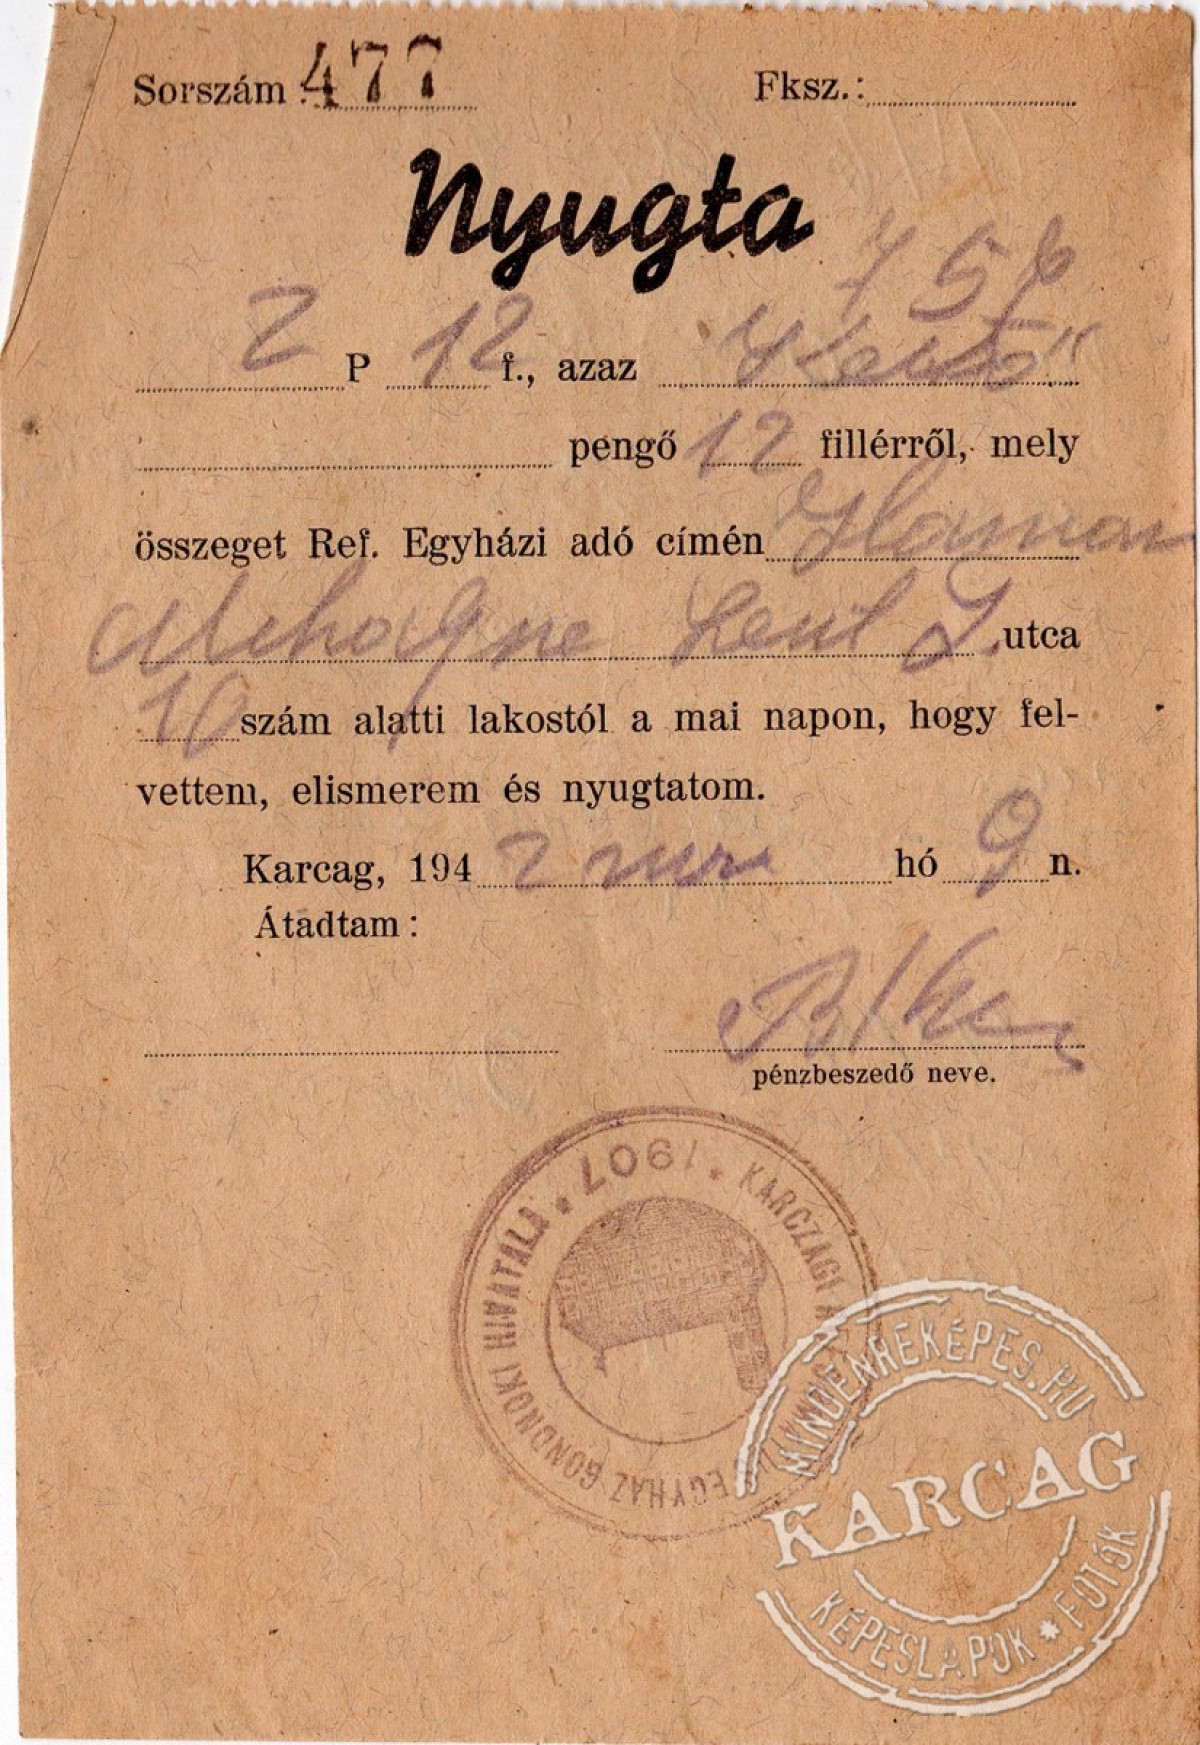 Sorszám 477 Fksz.:
Nyugta
756
2 P 12 f., azaz "Kettő"
pengő 12 fillérről, mely
összeget Ref. Egyházi adó címén
utca
10 szám alatti lakostól a mai napon, hogy fel-
vettem, elismerem és nyugtatom.
Karcag, 1942 hó 9 n.
Átadtam:
pénzbeszedő neve.
1907 * KARCZAGI EGYHÁZ GONDNOKI HIVATALA *
MINDENREKÉPES.HU
KARCAG
KÉPESLAPOK * FOTÓK